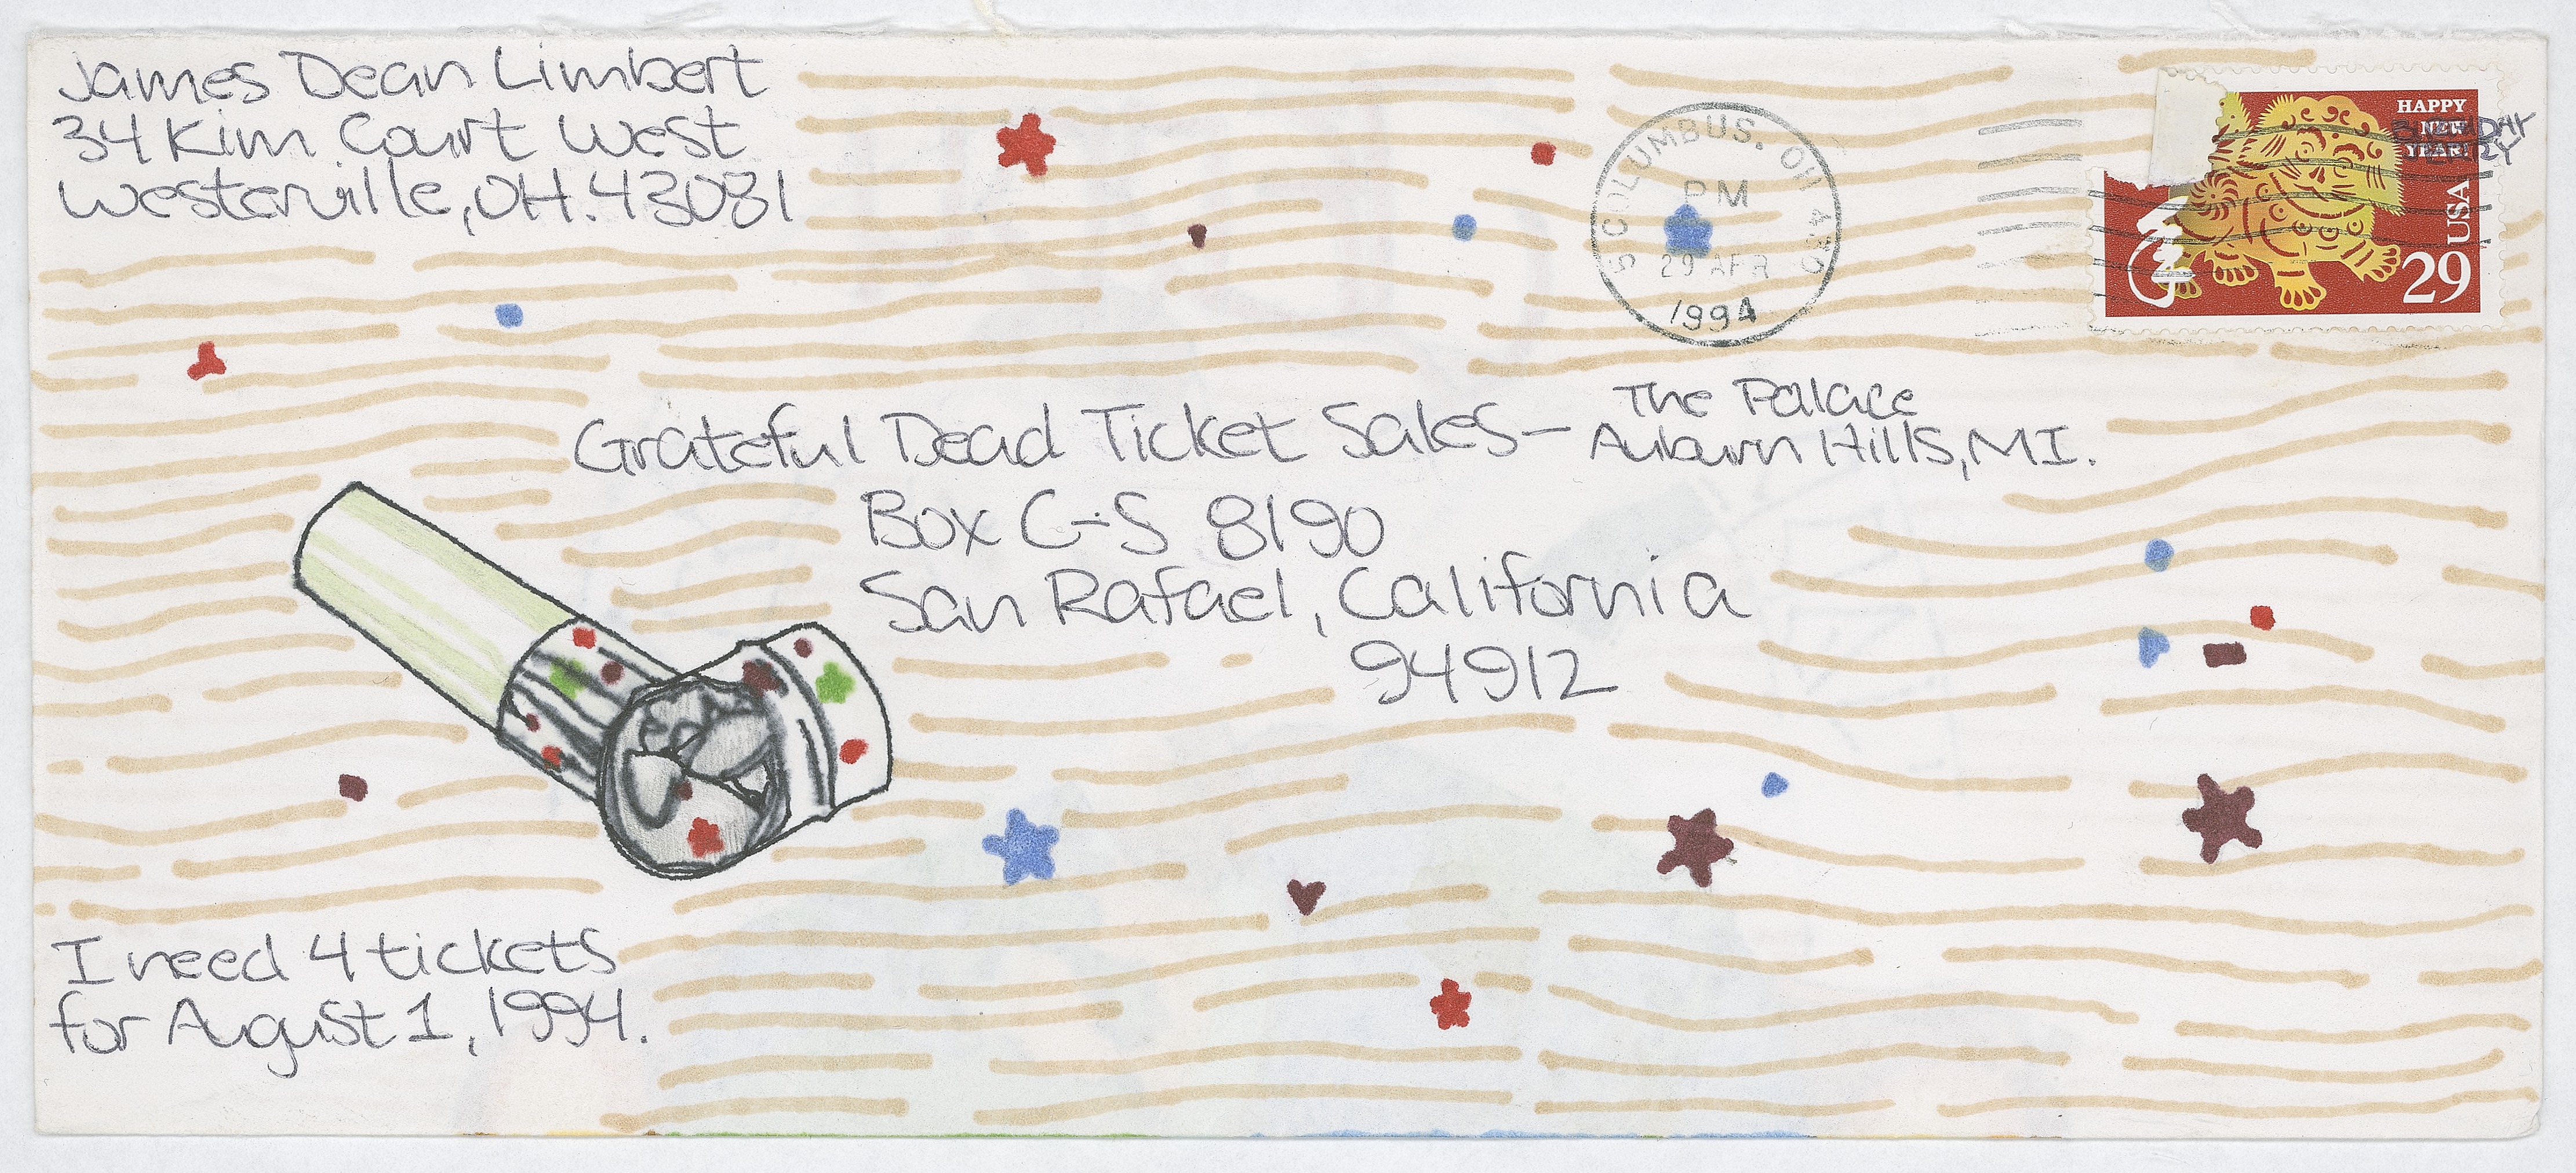 James Dean Limbert
34 Kim Court West
Westerville, OH. 43081
S COLUMBUS, OH
PM
29 APR
1994
HAPPY
NEW
YEAR!
USA
29
Grateful Dead Ticket Sales-
The Palace
Auburn Hills, MI.
Box C-S 8190
San Rafael, California
94912
I need 4 tickets
for August 1, 1994.